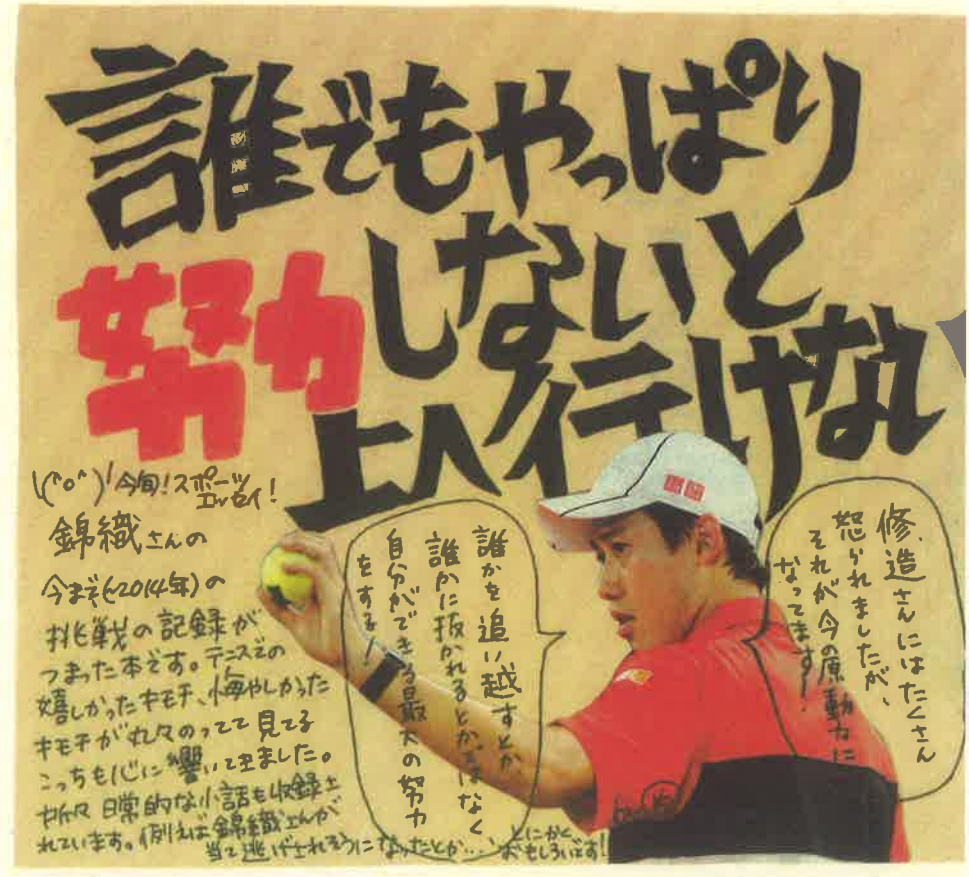 誰でもやっぱり
努力しないと
上へ行けない
\(^o^)/今旬!スポーツ
エッセイ!
錦織さんの
今まで(~2014年)の
挑戦の記録が
つまった本です。テニスでの
嬉しかったキモチ、悔やしかった
キモチが丸々のってて見てる
こっちも心に響いてきました。
所々日常的な小話も収録さ
れています。例えば錦織さんが
当て逃げされそうになったとか…、
とにかく、
おもしろいです!
誰かを追い越すとか
誰かに抜かれるとかではなく
自分ができる最大の努力
をする!
修造さんにはたくさん
怒られましたが、
それが今の原動力に
なってます!